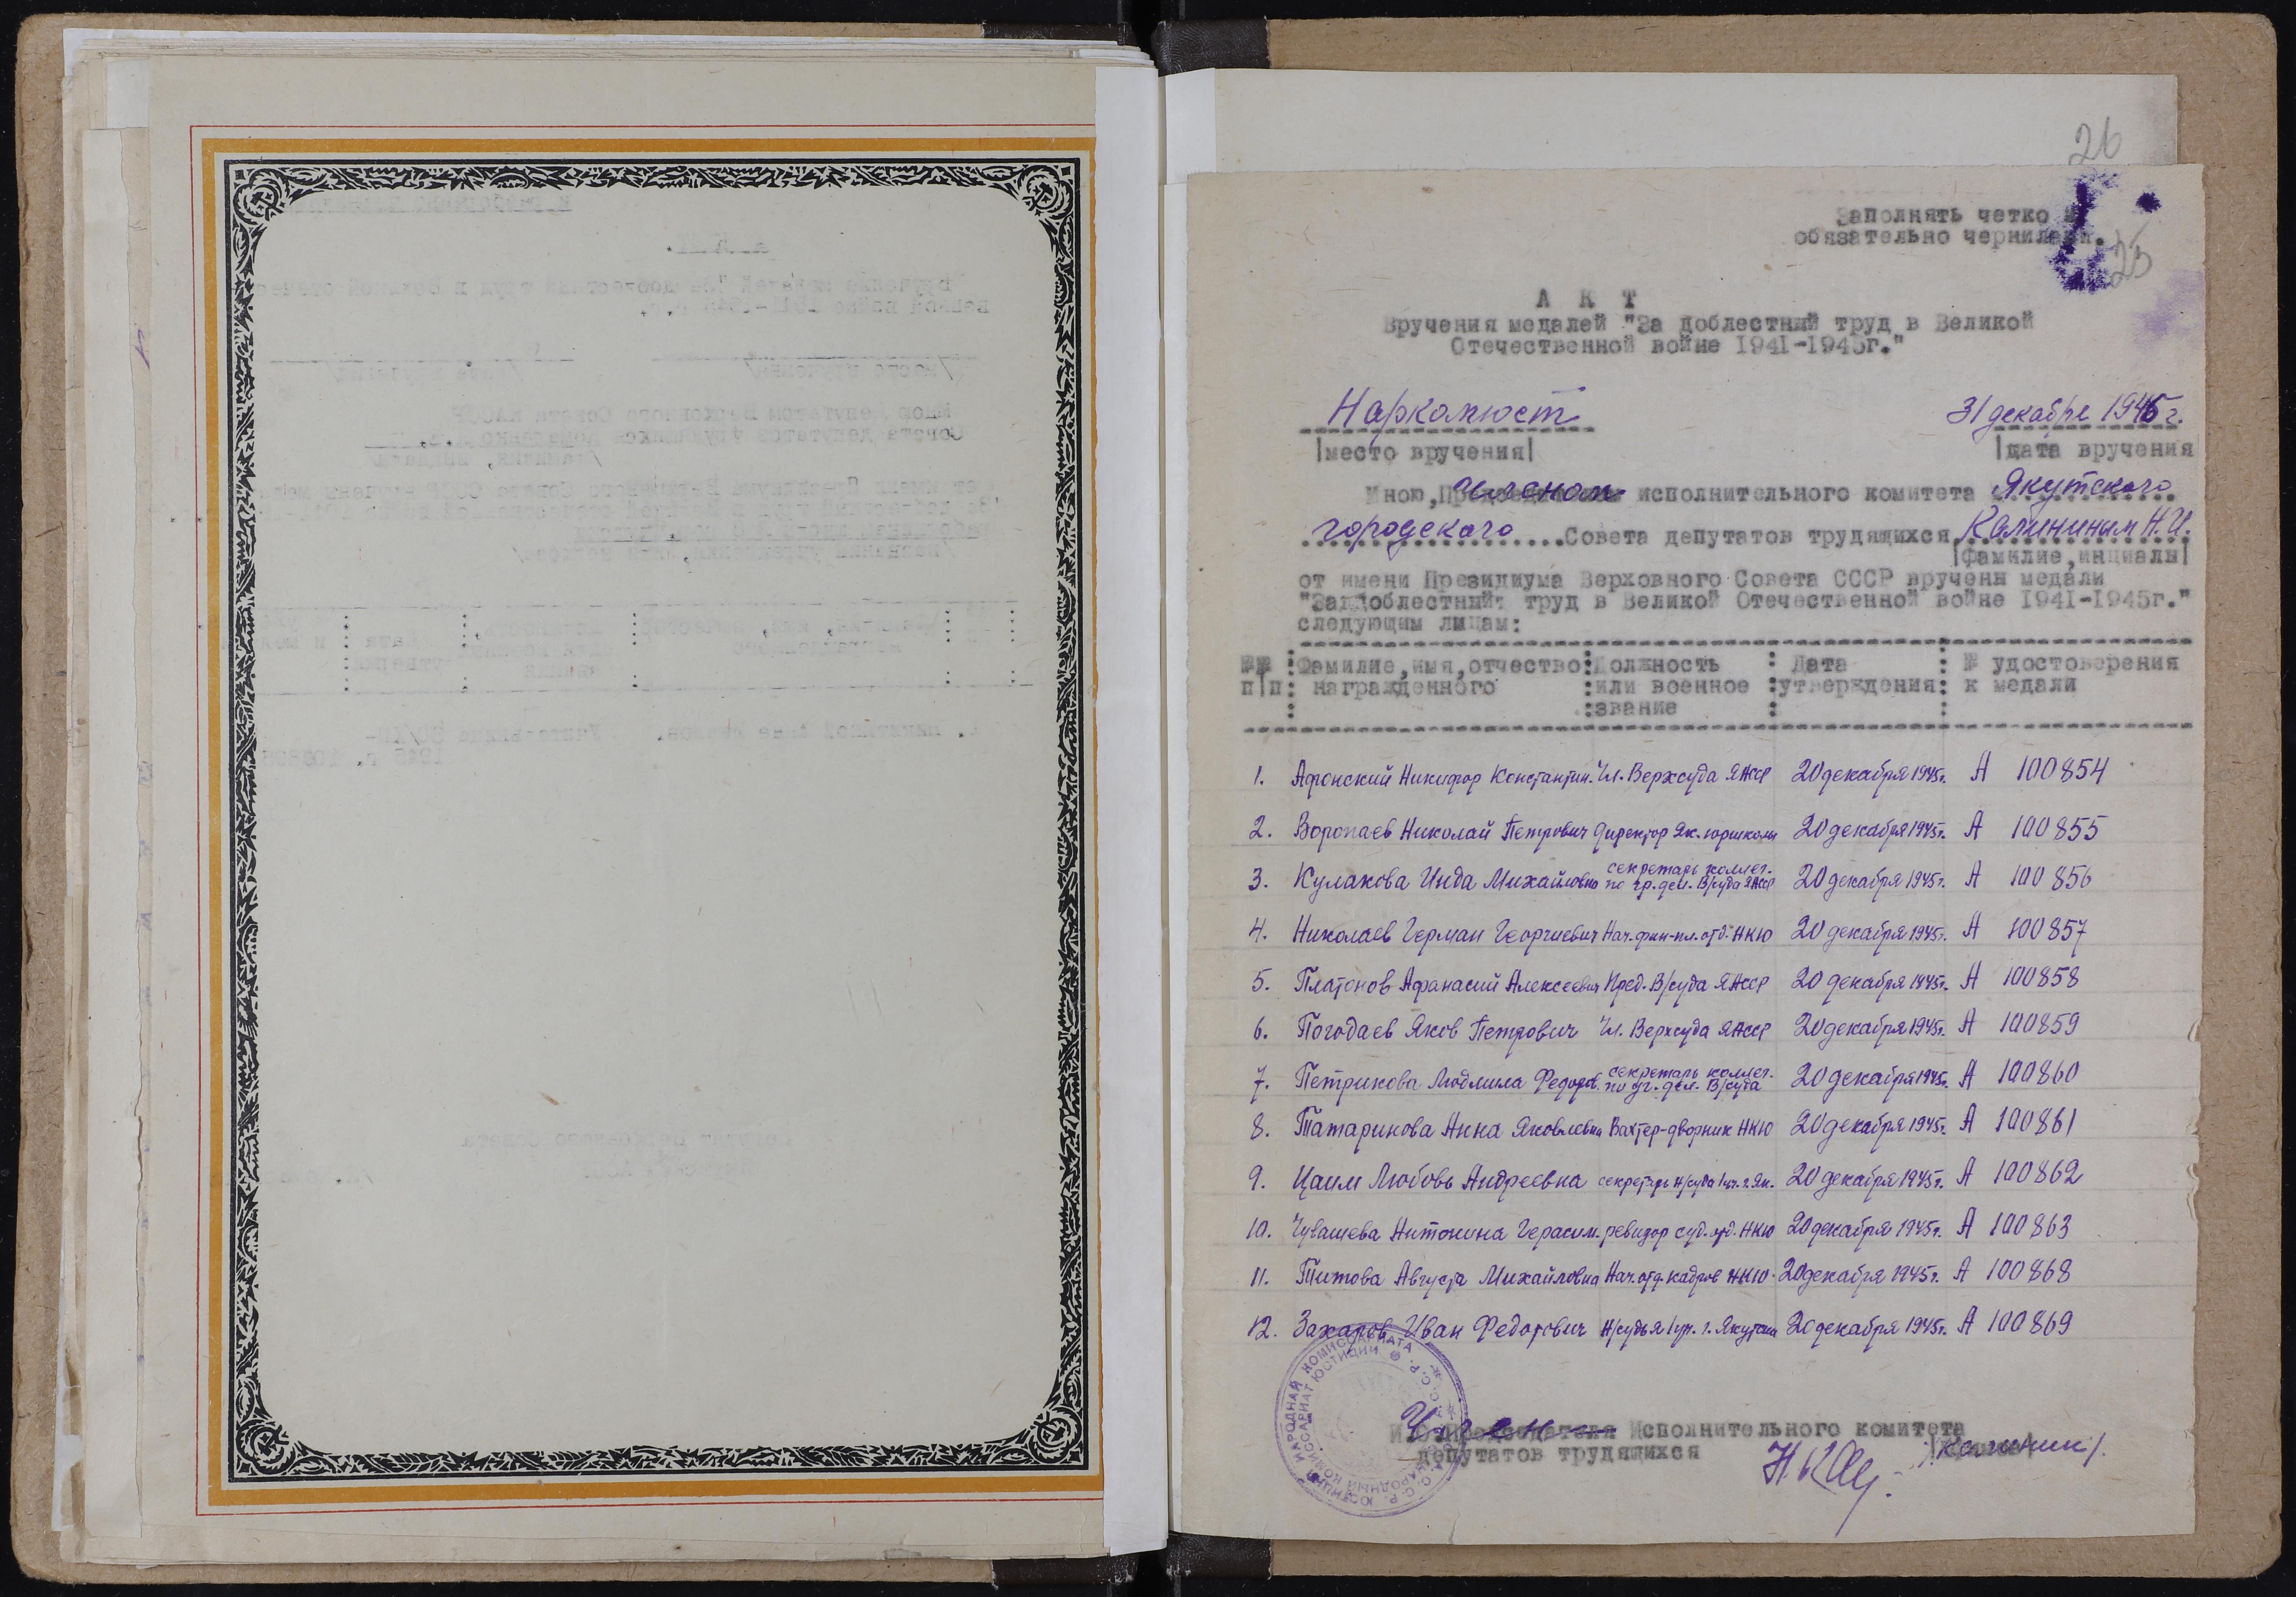 26
Заполнять четко и
обязательно чернилами.
25
А К Т
Вручения медалей "За доблестный труд в Великой
Отечественной войне 1941-1945г."
Наркомюст
31 декабре 1945 г.
|место вручения|
|дата вручения
Мною, членом исполнительного комитета Якутского
городского Совета депутатов трудящихся Калининым Н.И.
|фамилие,инциалы|
от имени Президиума Верховного Совета СССР вручены медали
"За доблестный труд в Великой Отечественной войне 1941-1945г."
следующим лицам:
№№ Фамилие,имя,отчество Должность Дата № удостоверения
п|п награжденного или военное утверждения к медали
звание
1. Афонский Никифор Константин. Чл. Верхсуда ЯАССР 20 декабря 1945г. А 100854
2. Воропаев Николай Петрович Директор Як. юршколы 20 декабря 1945г. А 100855
3. Кулакова Инда Михайловна секретарь коллег. по гр. дел. В/суда ЯАССР 20 декабря 1945г. А 100856
4. Николаев Герман Георгиевич Нач. фин-пл. отд. НКЮ 20 декабря 1945г. А 100857
5. Платонов Афанасий Алексеевич Пред. В/суда ЯАССР 20 декабря 1945г. А 100858
6. Погодаев Яков Петрович Чл. Верхсуда ЯАССР 20 декабря 1945г. А 100859
7. Петрикова Людмила Федоров. секретарь коллег. по уг. дел. В/суда 20 декабря 1945г. А 100860
8. Татаринова Анна Яковлевна Вахтер-дворник НКЮ 20 декабря 1945г. А 100861
9. Цаим Любовь Андреевна секретарь н/суда 1 уч. г. Як. 20 декабря 1945г. А 100862
10. Чувашева Антонина Герасим. ревизор суд. отд. НКЮ 20 декабря 1945г. А 100863
11. Титова Августа Михайловна Нач. отд. кадров НКЮ 20 декабря 1945г. А 100868
12. Захаров Иван Федорович Н/судья 1 уч. г. Якутска 20 декабря 1945г. А 100869
Член Исполнительного комитета
депутатов трудящихся
/Калинин/.